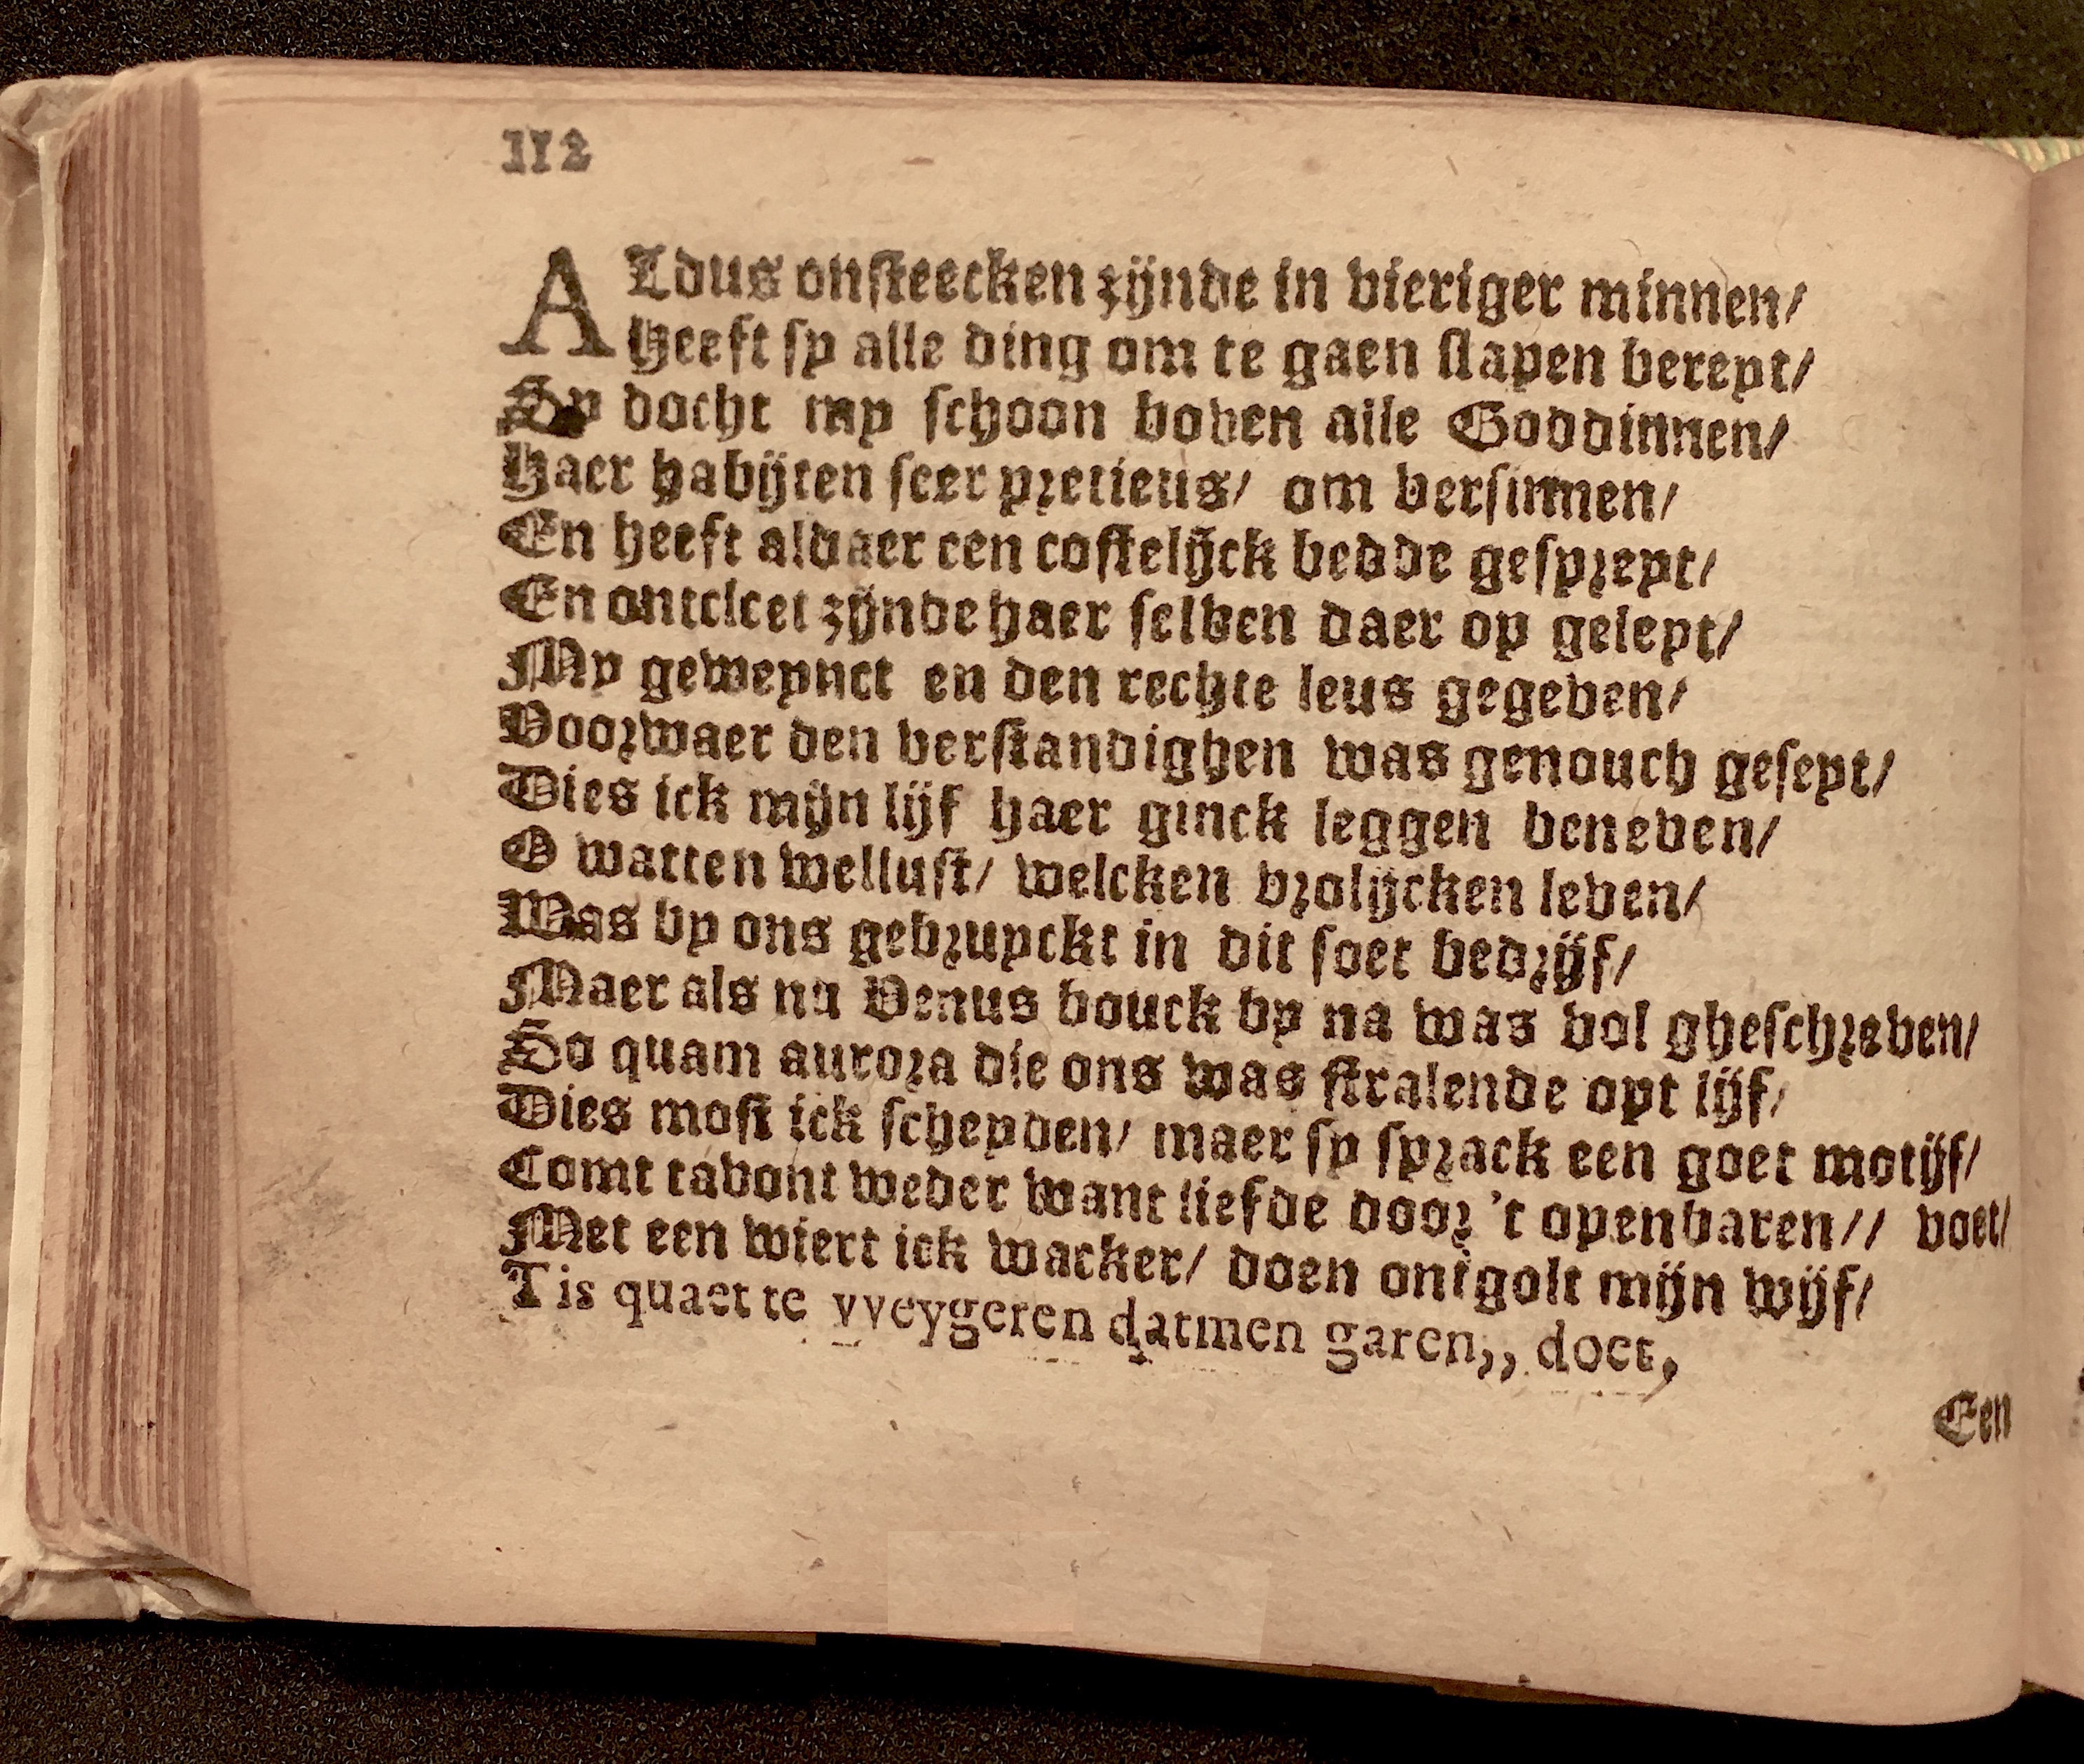 112
ALdus onsteecken zijnde in vieriger minnen/
Heeft sy alle ding om te gaen slapen bereyt/
Sy docht my schoon boven alle Goddinnen/
Haer habijten seer pretieus/ om versinnen/
En heeft aldaer een costelijck bedde gespreyt/
En ontcleet zijnde haer selven daer op geleyt/
My geweynct en den rechte leus gegeven/
Voorwaer den verstandighen was genouch geseyt/
Dies ick mijn lijf haer ginck leggen beneven/
O watten wellust/ welcken vrolijcken leven/
Was by ons gebruyckt in dit soet bedrijf/
Maer als nu Venus bouck by na was vol gheschreven/
So quam aurora die ons was stralende opt lijf/
Dies most ick scheyden/ maer sy sprack een goet motijf/
Comt tavont weder want liefde door 't openbaren// voet/
Met een wiert ick wacker/ doen ontgolt mijn wijf/
T is quaet te vveygeren datmen garen,, doet,
Een